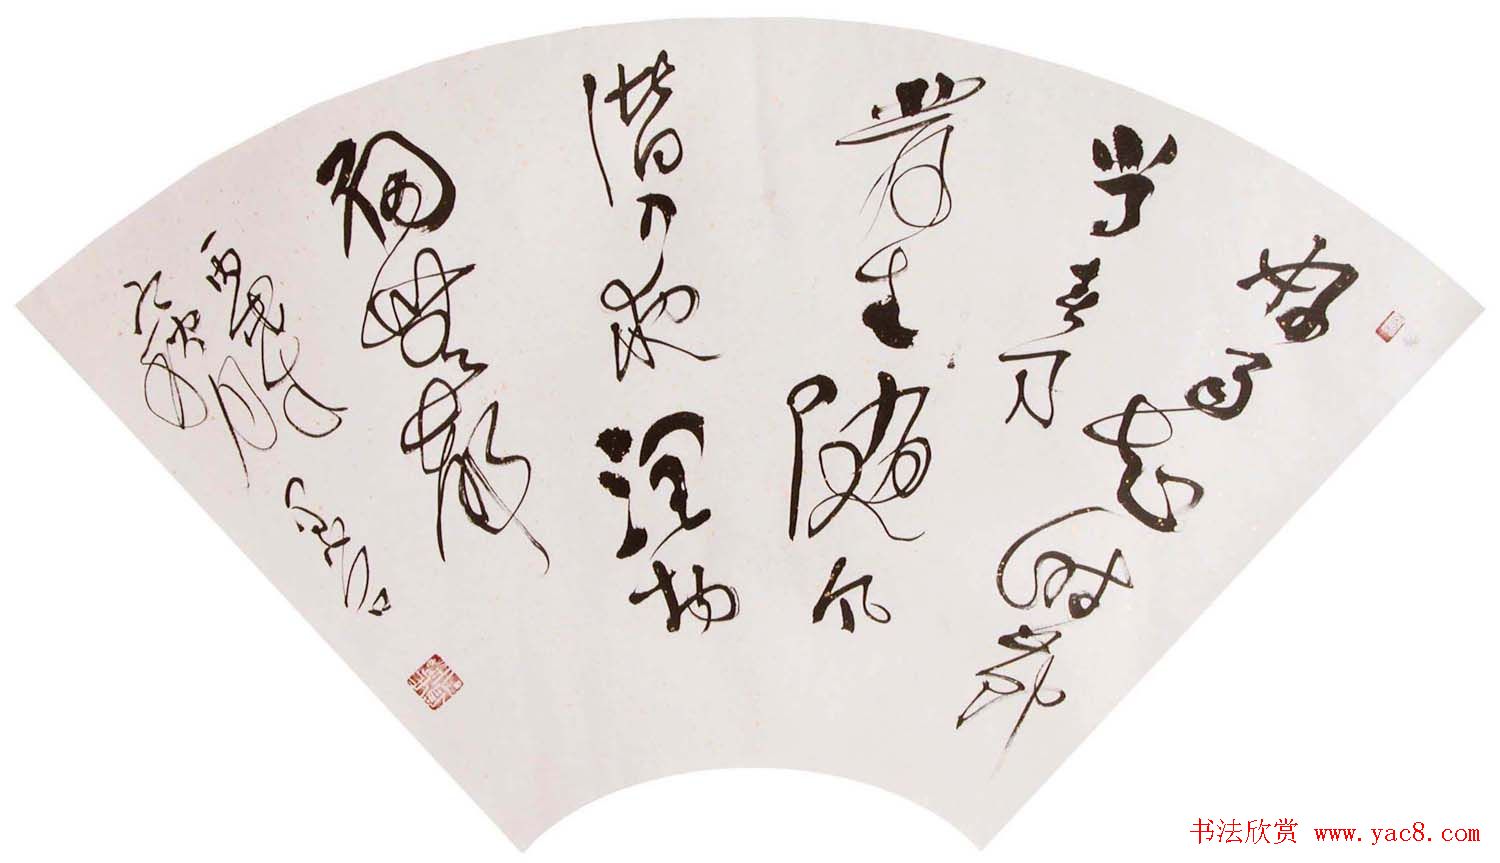 好雨知时节
当春乃
发生随风
潜入夜润物
细无声
书法欣赏 www.yac8.com